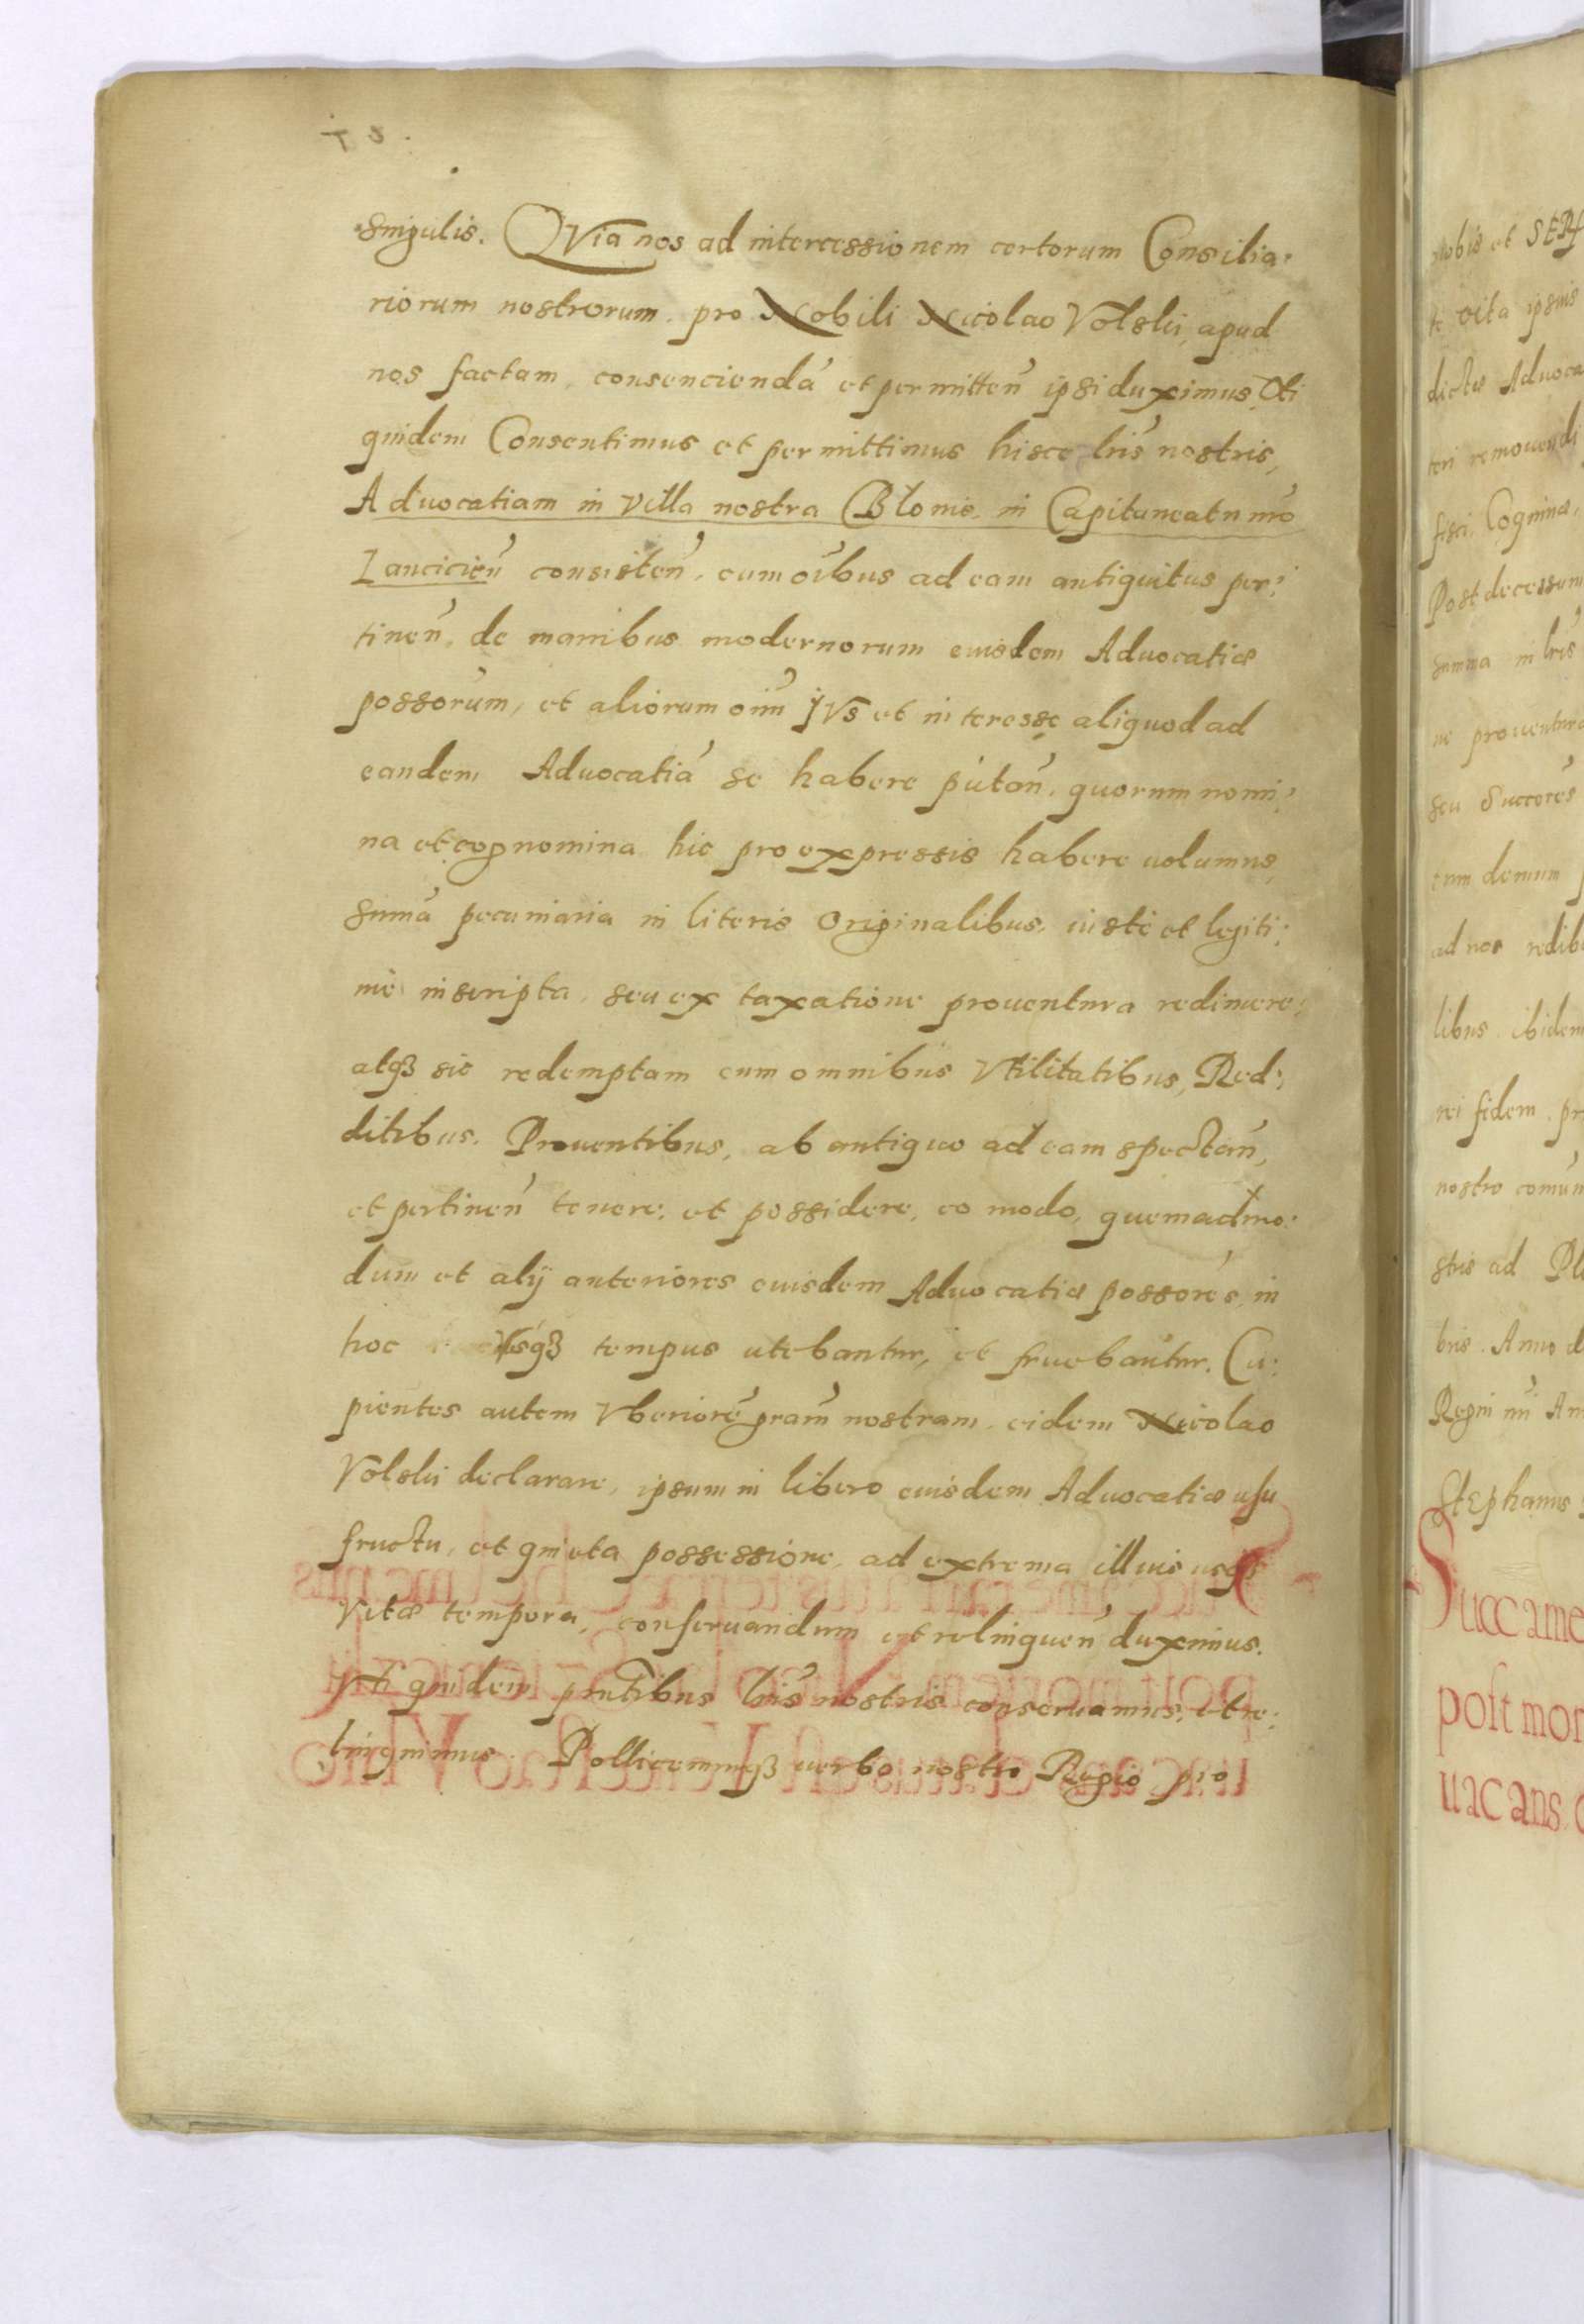 singulis. QVia nos ad intercessionem certorum Consilia:
riorum nostrorum. pro Nobili Nicolao Volski, apud
nos factam, consenciendā et permitteñ ipsi duximus, Uti
quidem Consentimus et permittimus hisce lris nostris,
Aduocatiam in villa nostra Blonie, in Capitaneatu nro
Lancicieñ consisteñ, cum oībus ad eam antiquitus per:
tineñ, de manibus modernorum eiusdem Aduocatiæ
possorum, et aliorum oīm Jvs et interesse aliquod ad
eandem Aduocatiā se habere putañ, quorum nomi:
na et cognomina hic pro expressis habere uolumus,
summā pecuniaria in literis Originalibus, iustè et legiti:
mè inscripta, seu ex taxatione prouentura redimere:
atqz sic redemptam cum omnibus Vtilitatibus, Red:
ditibus. Prouentibus, ab antiquo ad eam spectañ,
et pertineñ tenere, et possidere, eo modo, quemadmo:
dum et alij anteriores eiusdem Aduocatiæ possores in
hoc vsqz tempus utebantur, et fruebantur. Cu:
pientes autem Vberiorē gram̄ nostram, eidem Nicolao
Volski declarare, ipsum in libero eiusdem Aduocatiæ usu
fructu, et quieta possessione, ad extrema illius usqz
Vitæ tempora, conseruandum et relinqueñ duximus.
Vti quidem pntibus lris nostris conseruamus, et re:
linquimus. Pollicemurqz uerbo nostro Regio pro
nobis et
te vita ipsius
dictæ Aduoca
teri remouendi
fisci, Cognina,
Post decessum
summa in lris
ue prouentura
seu Succores
tum demum
ad nos redib
libus ibidem
rei fidem pr
nostro comun
stris ad Pl
bris. Anno d
Regni nri An
Stephanus
Succame
post mor
uacans